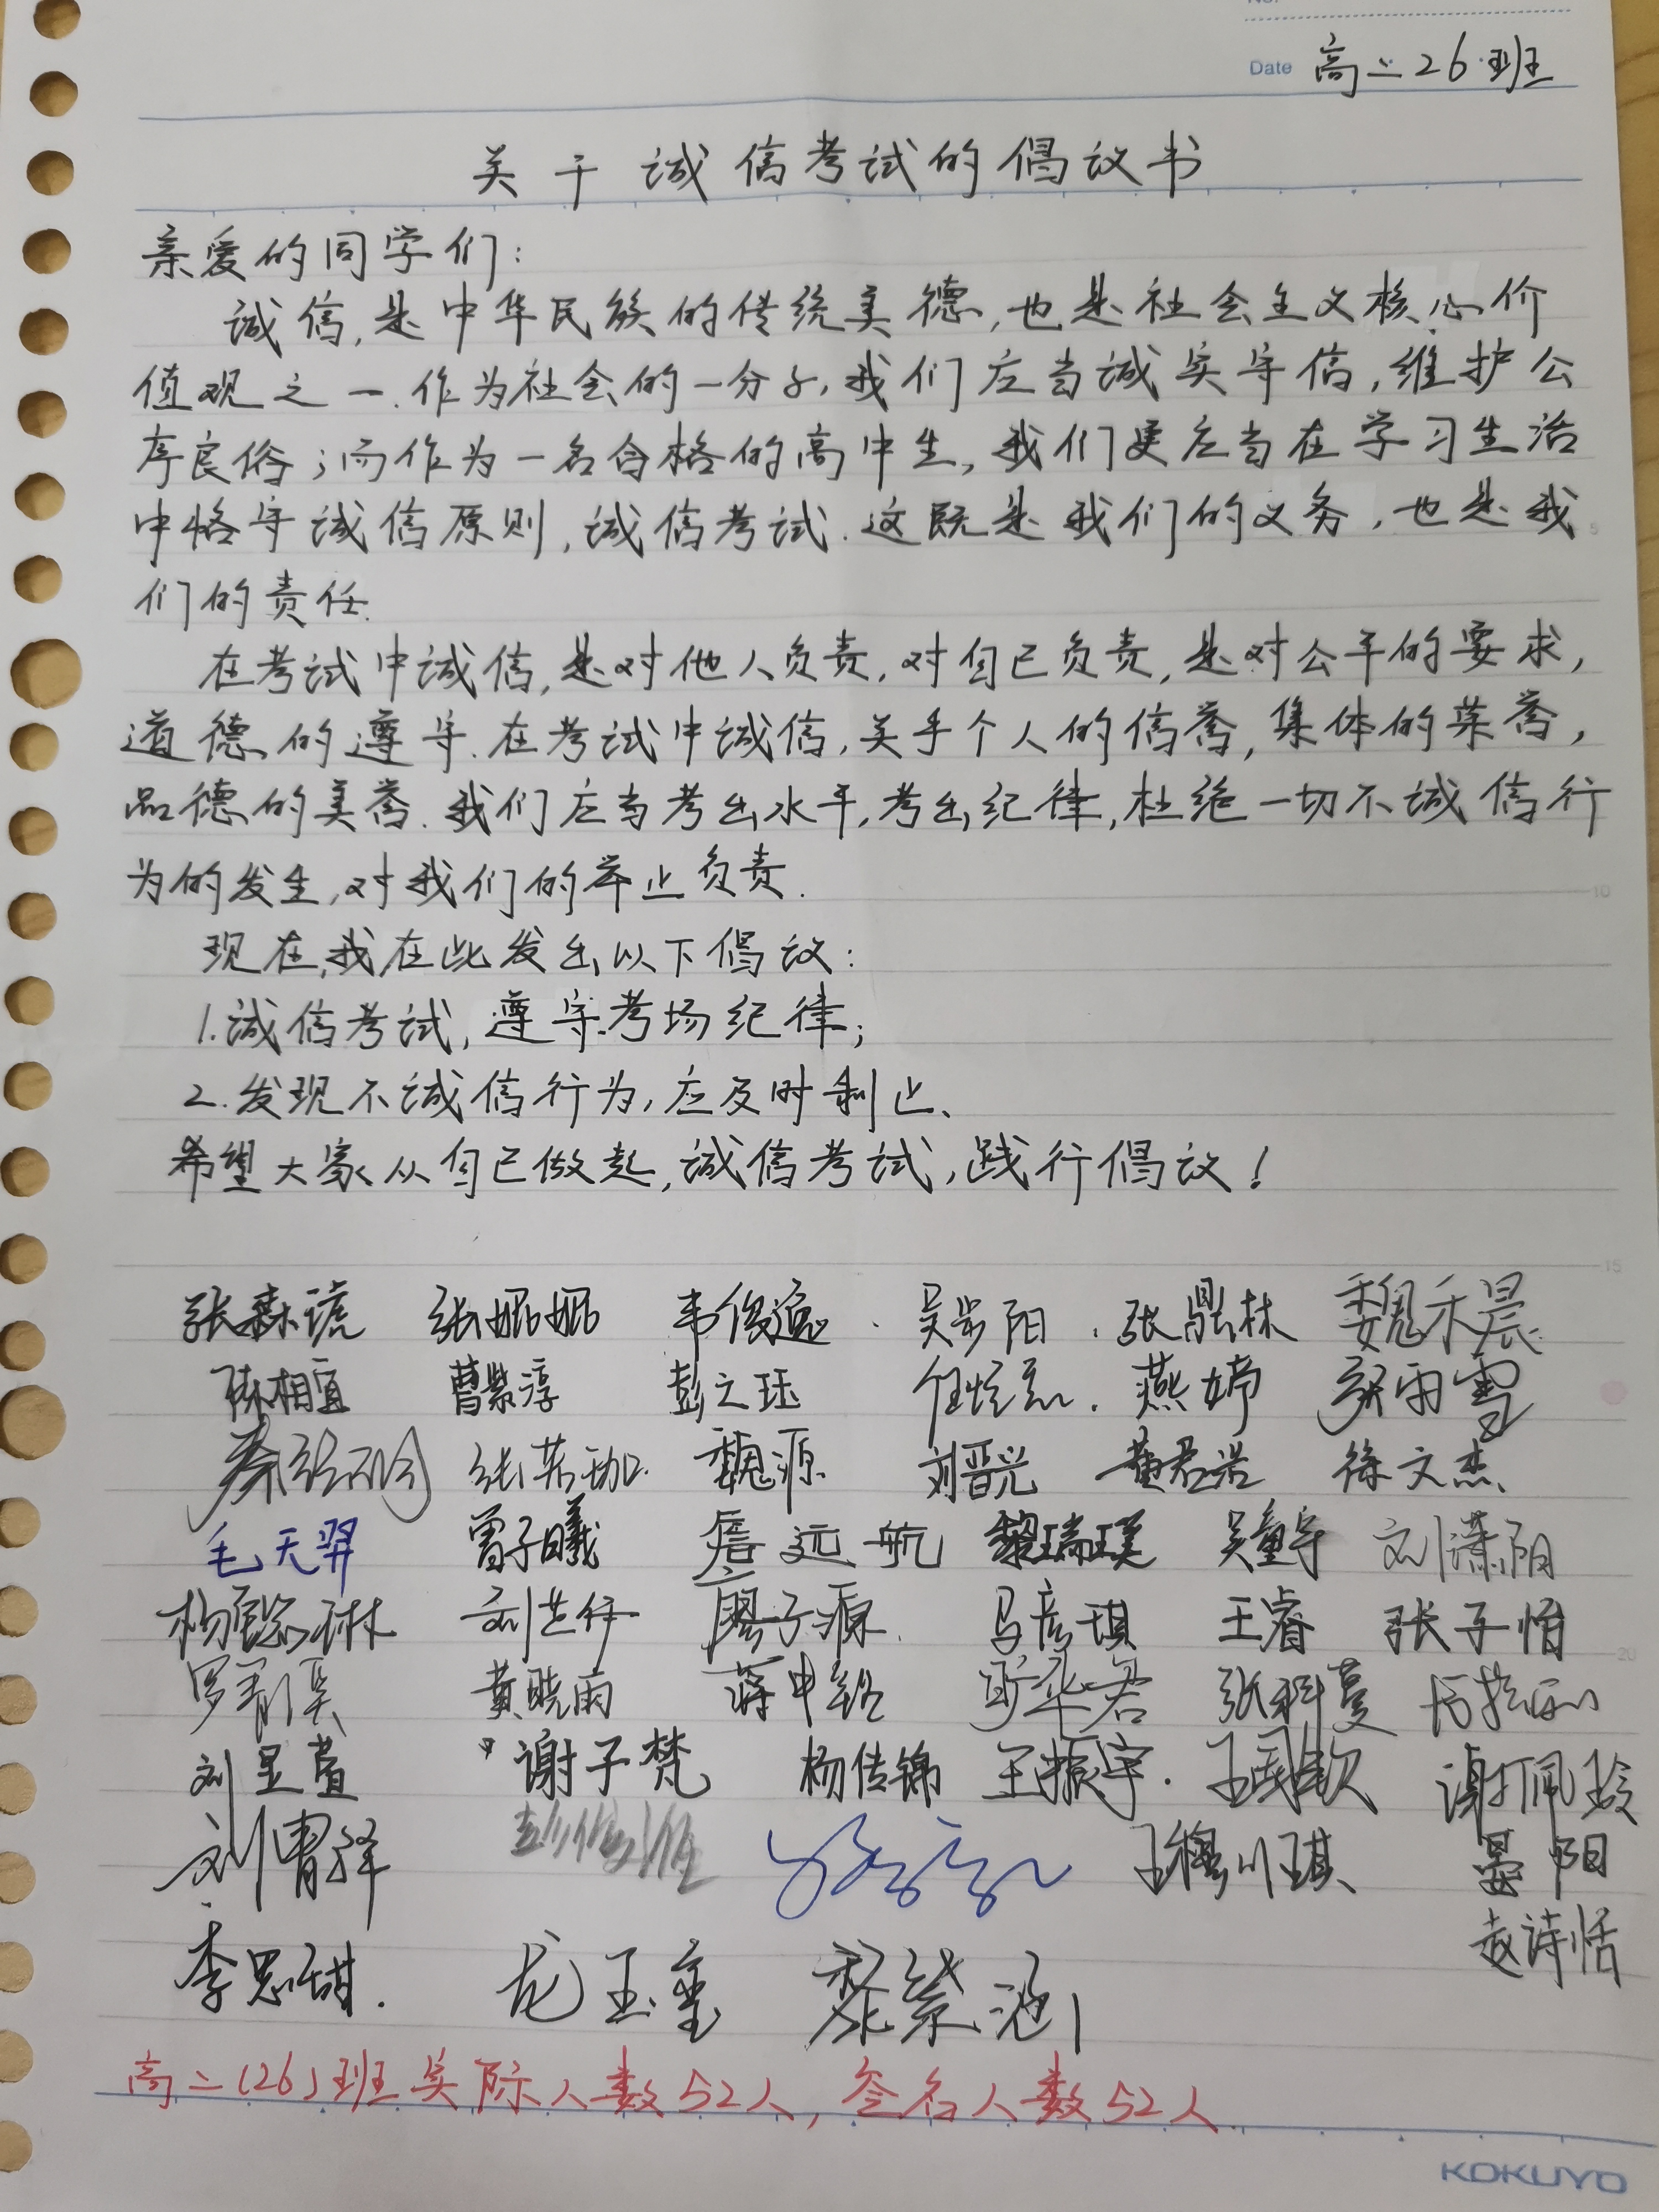 No.
Date 高二26班
关于诚信考试的倡议书
亲爱的同学们:
诚信,是中华民族的传统美德,也是社会主义核心价
值观之一.作为社会的一分子,我们应当诚实守信,维护公
序良俗;而作为一名合格的高中生,我们更应当在学习生活
中恪守诚信原则,诚信考试.这既是我们的义务,也是我
们的责任.
在考试中诚信,是对他人负责,对自己负责,是对公平的要求,
道德的遵守.在考试中诚信,关乎个人的信誉,集体的荣誉,
品德的美誉.我们应当考出水平,考出纪律,杜绝一切不诚信行
为的发生,对我们的举止负责.
现在,我在此发出以下倡议:
1.诚信考试,遵守考场纪律;
2.发现不诚信行为,应及时制止、
希望大家从自己做起,诚信考试,践行倡议!
张森琥 张娜娜 韦俊逸 吴步阳 张鼎林 魏禾晨
陈相宜 曹紫淳 彭之珏 燕婷
魏源 刘晋光 黄君浩 徐文杰
毛天羿 曾子曦 詹远航 黎瑞璞 吴童宇 刘潇阳
刘芷伊 廖子源 马彦琪 王睿 张子怡
黄晓雨 蒋申铭 旷华君 张科蔓
刘昱萱 谢子梵 杨传锦 王振宇 谢佩玲
刘胃铎 王穆川琪 晏阳
赵诗恬
李思甜 龙玉玺 黎紫涵
高二(26)班实际人数52人,签名人数52人
5
10
15
20
KOKUYO